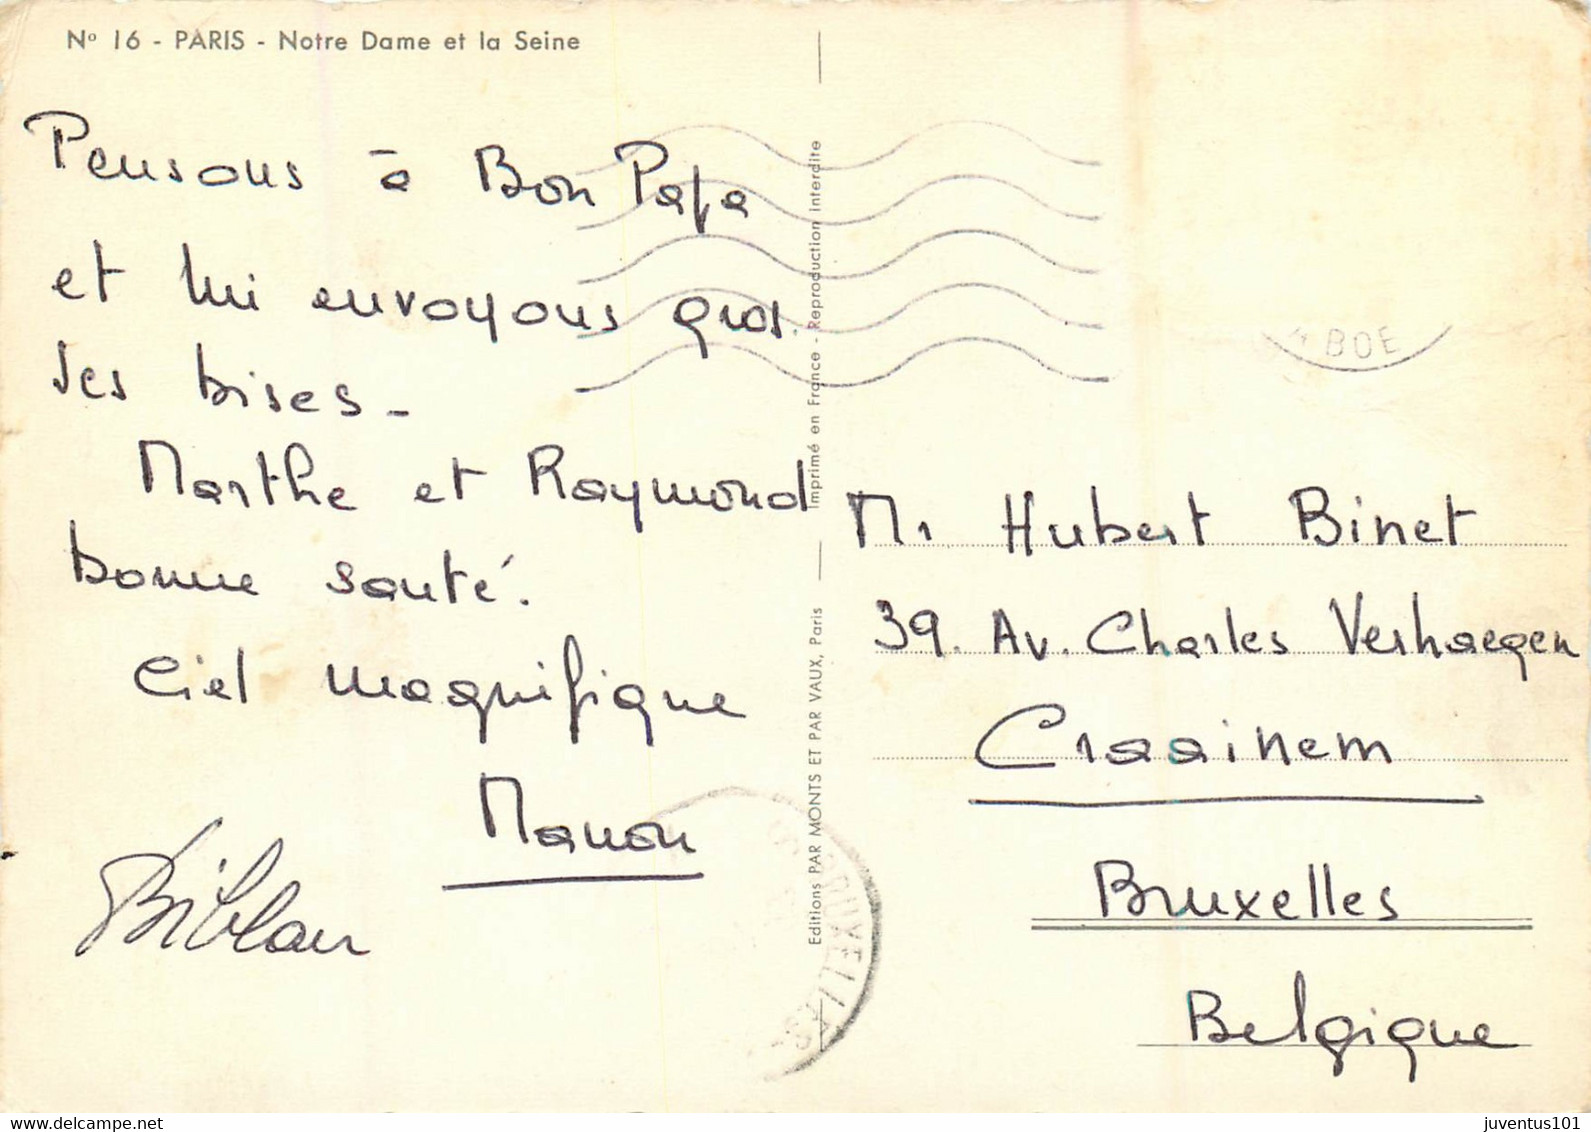 Nº 16 - PARIS - Notre Dame et la Seine
Pensons à Bon Papa
et lui envoyons gros.
ses bises -
Marthe et Raymond
bonne santé.
Ciel magnifique
Manon
Imprimé en France - Reproduction interdite
Editions PAR MONTS ET PAR VAUX, Paris
BOE
Mr Hubert Binet
39. Av. Charles Verhaegen
Craainem
Bruxelles
Belgique
BRUXELLES
juventus101